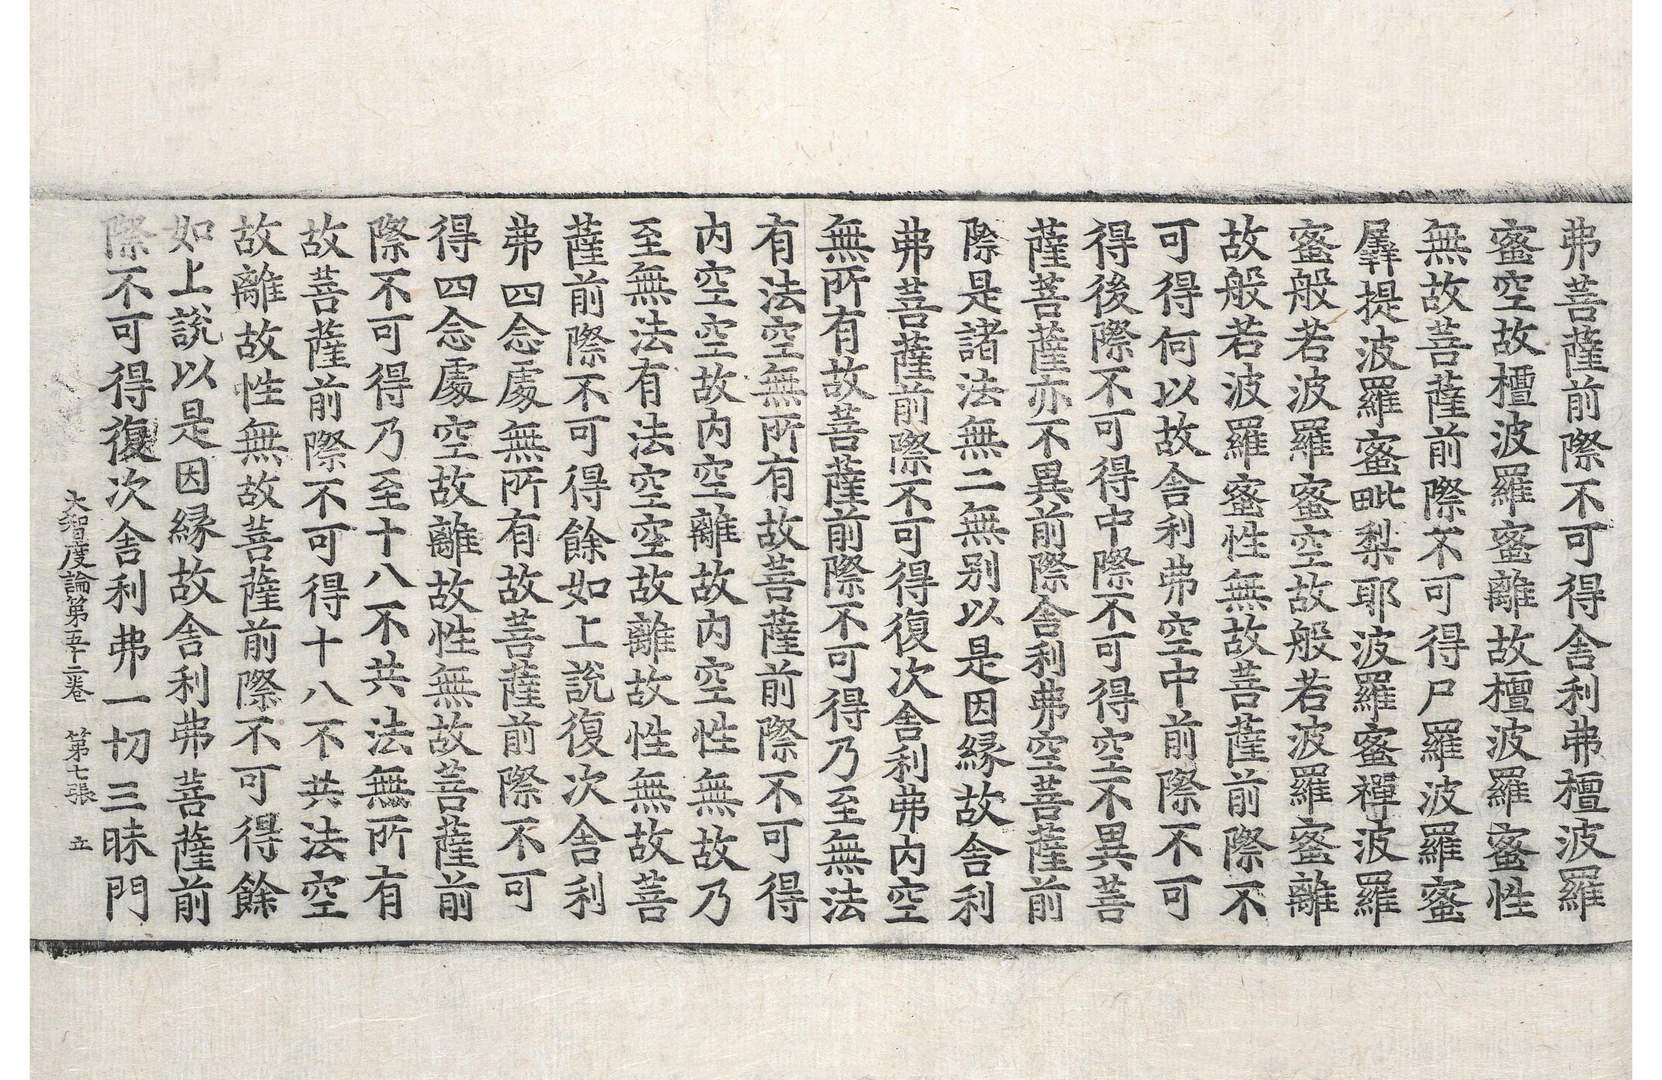 弗菩薩前際不可得舍利弗檀波羅
蜜空故檀波羅蜜離故檀波羅蜜性
無故菩薩前際不可得尸羅波羅蜜
羼提波羅蜜毗梨耶波羅蜜禪波羅
蜜般若波羅蜜空故般若波羅蜜離
故般若波羅蜜性無故菩薩前際不
可得何以故舍利弗空中前際不可
得後際不可得中際不可得空不異菩
薩菩薩亦不異前際舍利弗空菩薩前
際是諸法無二無別以是因縁故舍利
弗菩薩前際不可得復次舍利弗内空
無所有故菩薩前際不可得乃至無法
有法空無所有故菩薩前際不可得
内空空故内空離故内空性無故乃
至無法有法空空故離故性無故菩
薩前際不可得餘如上說復次舍利
弗四念處無所有故菩薩前際不可
得四念處空故離故性無故菩薩前
際不可得乃至十八不共法無所有
故菩薩前際不可得十八不共法空
故離故性無故菩薩前際不可得餘
如上說以是因縁故舍利弗菩薩前
際不可得復次舍利弗一切三昧門
大智度論第五十二卷 第七張 立